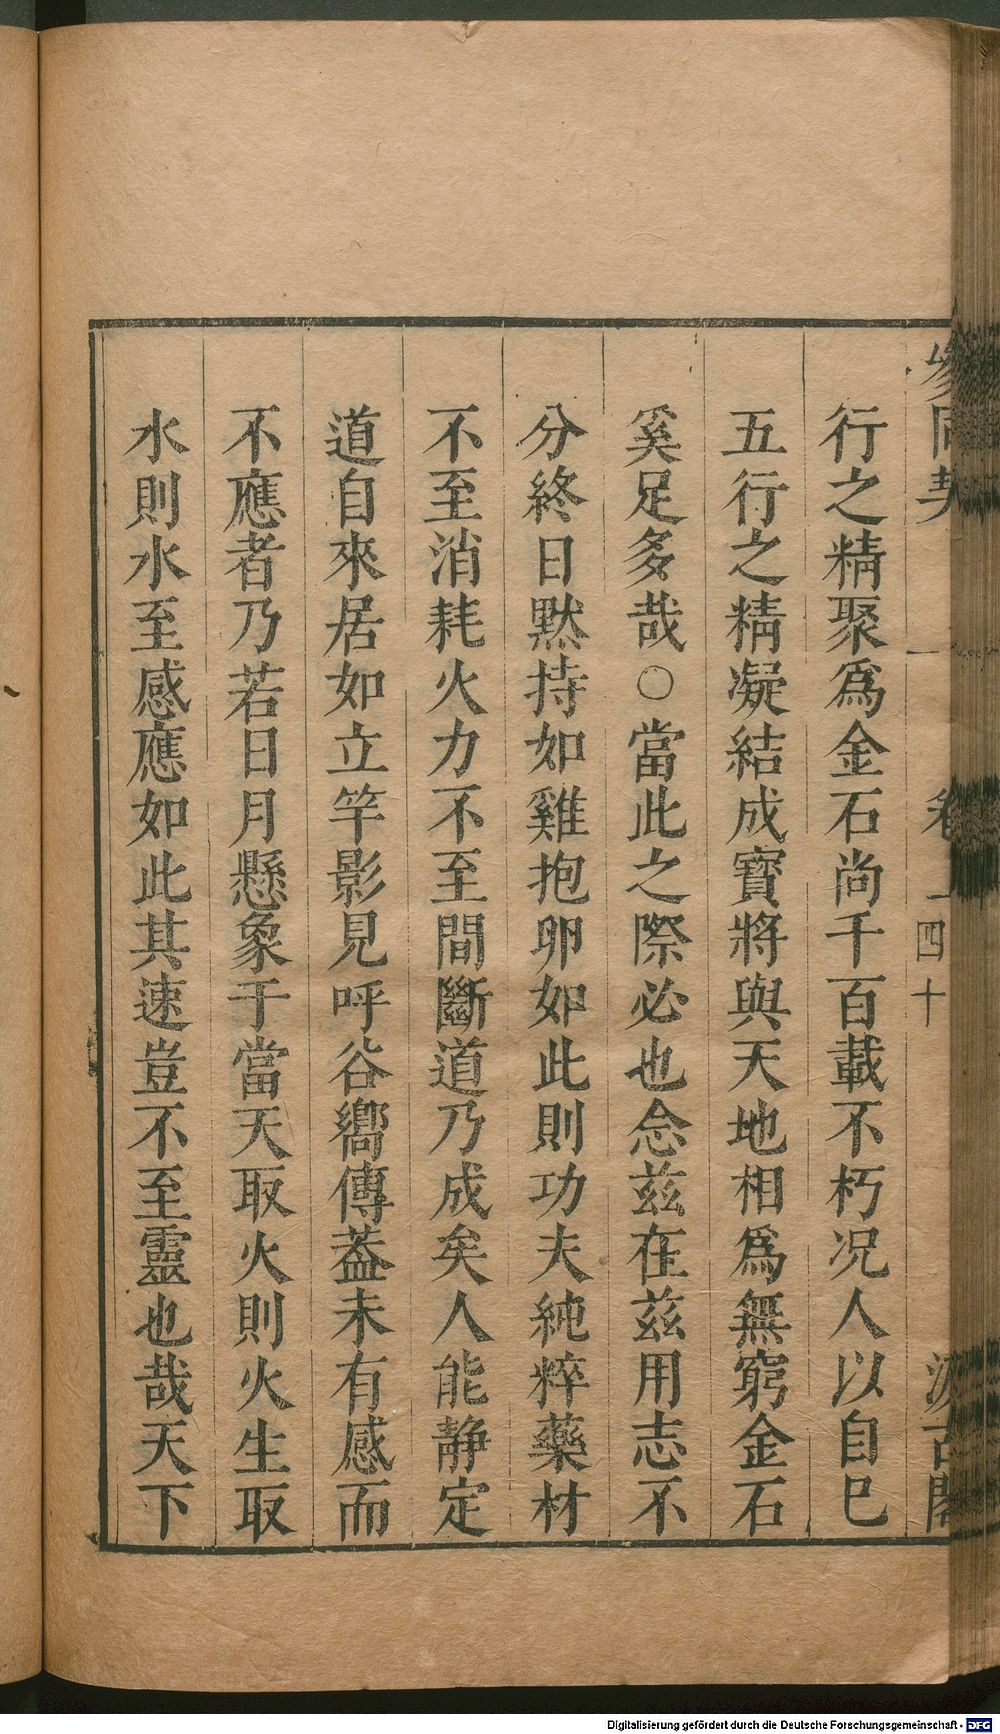 參同契 卷上 四十 汲古閣
行之精聚爲金石尚千百載不朽况人以自巳
五行之精凝結成寳將與天地相爲無窮金石
奚足多哉○當此之際必也念兹在兹用志不
分終日默持如雞抱卵如此則功夫純粹藥材
不至消耗火力不至間斷道乃成矣人能静定
道自來居如立竿影見呼谷嚮傳葢未有感而
不應者乃若日月懸象于當天取火則火生取
水則水至感應如此其速豈不至靈也哉天下
Digitalisierung gefördert durch die Deutsche Forschungsgemeinschaft - DFG